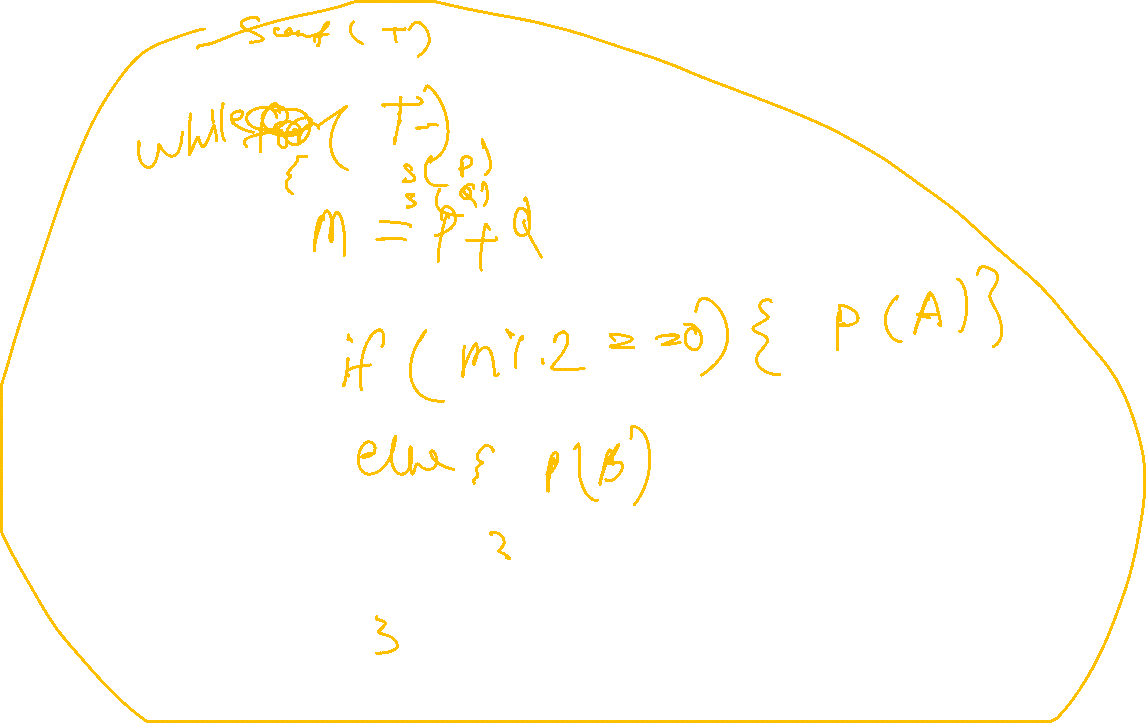 Scanf (T)
while (T-)
{
s(P)
s(Q)
M = P + Q
if (m%.2 = =0) { P(A)}
else { P(B)
}
}